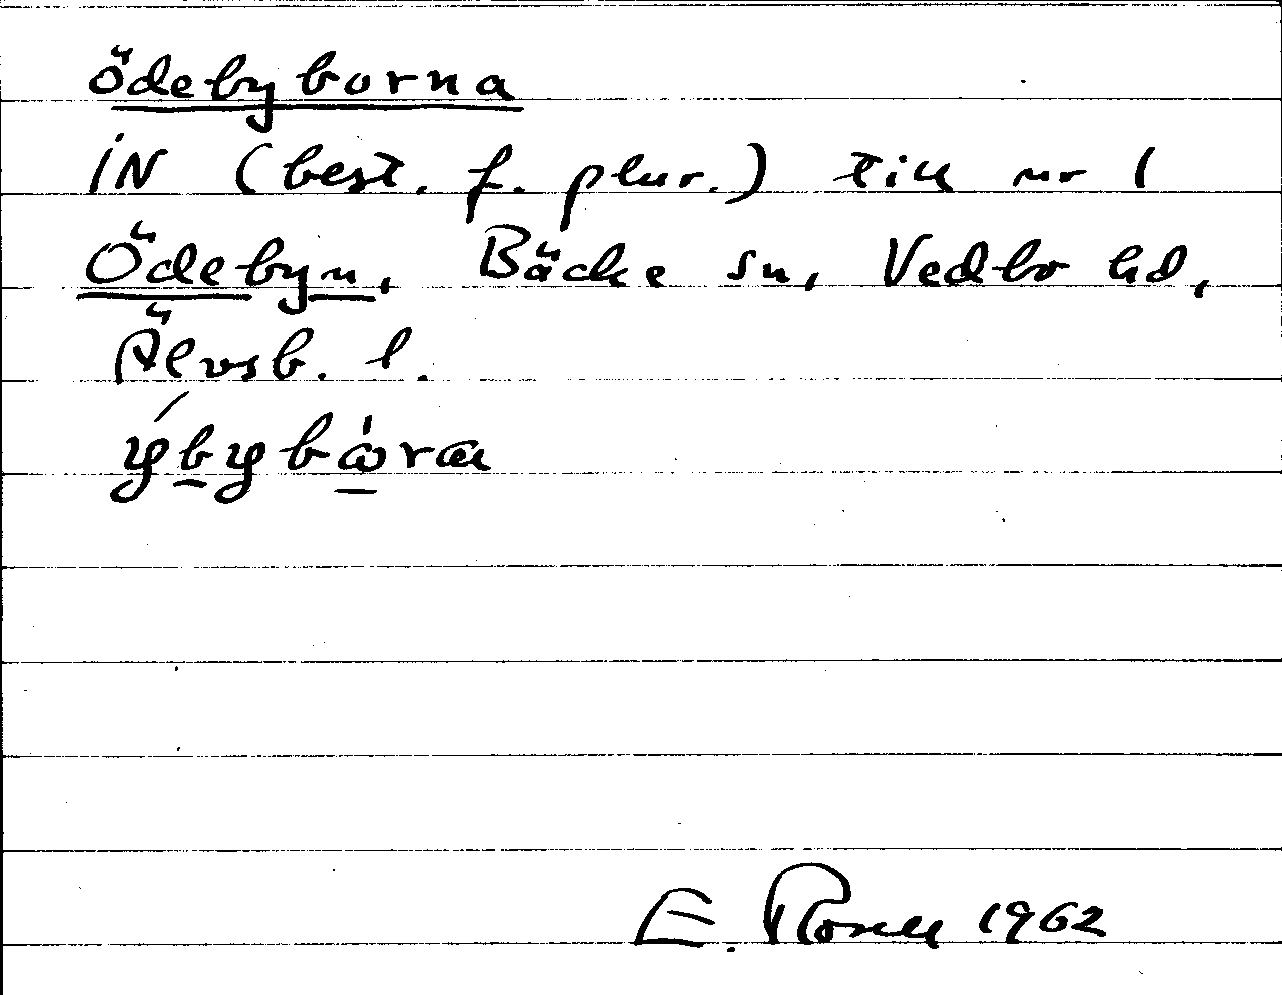 ödebyborna
iN (best. f. plur.) till nr 1
Ödebyn, Bäcke sn, Vedbo hd,
Älvsb. l.
E. Rosell 1962